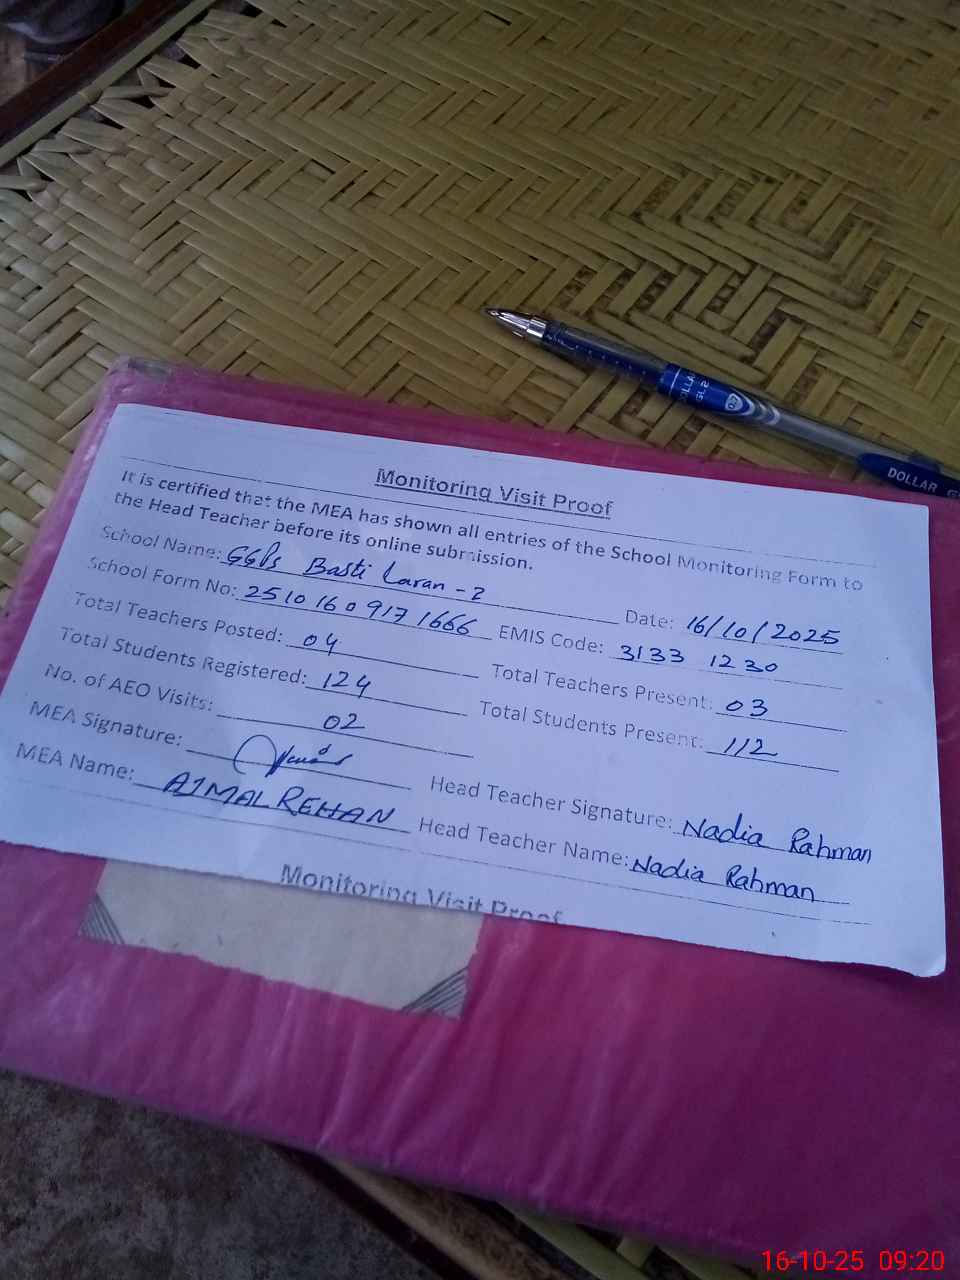 DOLLAR
Monitoring Visit Proof
It is certified that the MEA has shown all entries of the School Monitoring Form to
the Head Teacher before its online submission.
School Name: GGPS Basti Laran - 2 Date: 16/10/2025
School Form No: 25101609171666 EMIS Code: 3133 1230
Total Teachers Posted: 04 Total Teachers Present: 03
Total Students Registered: 124 Total Students Present: 112
No. of AEO Visits: 02
MEA Signature: Head Teacher Signature: Nadia Rahman
MEA Name: AJMAL REHAN Head Teacher Name: Nadia Rahman
Monitoring Visit Proof
16-10-25 09:20